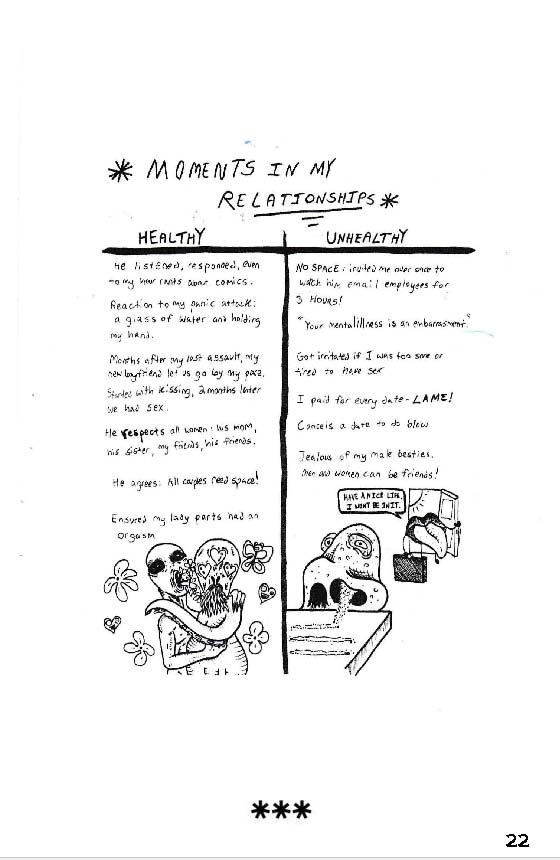 * MOMENTS IN MY
RELATIONSHIPS *
HEALTHY
He listened, responded, even
to my hour rants about comics.
Reaction to my panic attack:
a glass of water and holding
my hand.
Months after my last assault, my
new boyfriend let us go by my pace.
Started with kissing, 2 months later
we had sex.
He respects all women: his mom,
his sister, my friends, his friends.
He agrees: All couples need space!
Ensured my lady parts had an
orgasm
UNHEALTHY
NO SPACE: invited me over once to
watch him email employees for
3 HOURS!
"Your mental illness is an embarrasment."
Got irritated if I was too sore or
tired to have sex
I paid for every date - LAME!
Cancels a date to do blow
Jealous of my male besties.
Men and women can be friends!
HAVE A NICE LIFE.
I WONT BE IN IT.
***
22